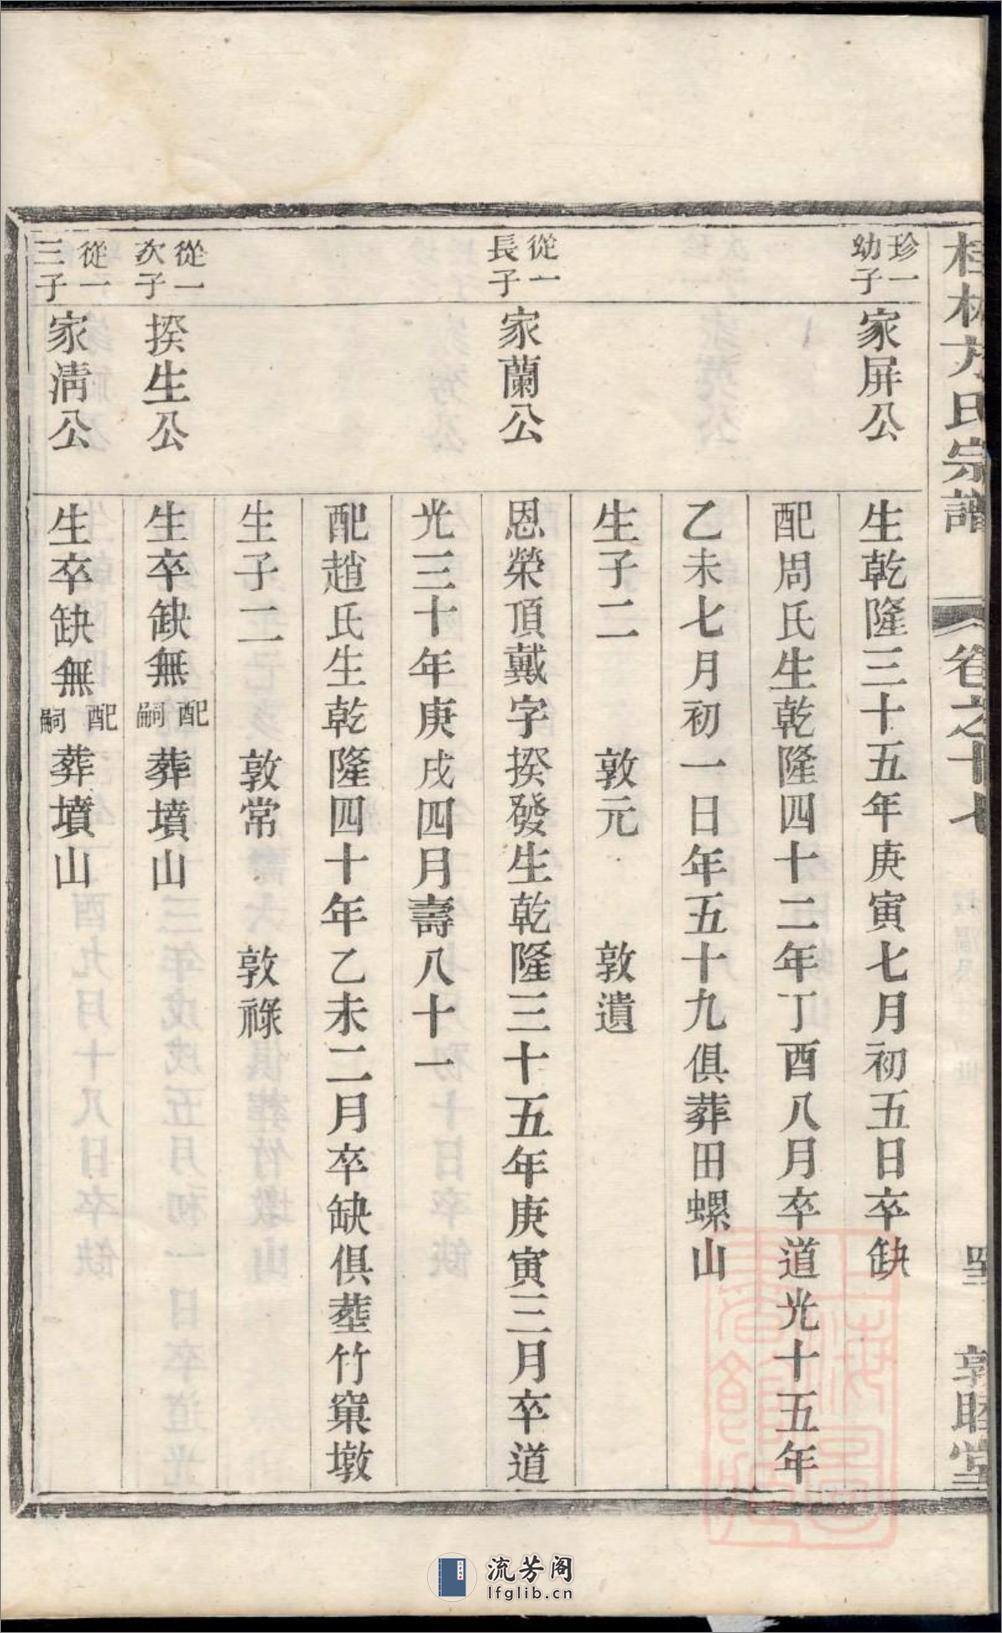 桂林方氏宗譜 卷之十七 敦睦堂
珍一幼子
家屏公
生乾隆三十五年庚寅七月初五日卒缺
配周氏生乾隆四十二年丁酉八月卒道光十五年
乙未七月初一日年五十九俱葬田螺山
生子二 敦元 敦遺
從一長子
家蘭公
恩榮頂戴字揆發生乾隆三十五年庚寅三月卒道
光三十年庚戌四月壽八十一
配趙氏生乾隆四十年乙未二月卒缺俱塟竹窠墩
生子二 敦常 敦祿
從一次子
揆生公
生卒缺無配嗣葬墳山
從一三子
家淸公
生卒缺無配嗣葬墳山
流芳阁
lfglib.cn